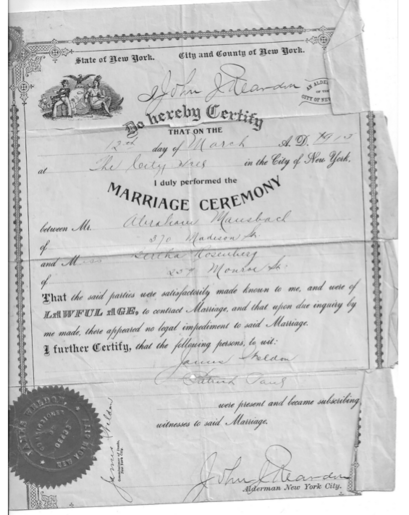 State of New York. City and County of New York.
I John J Reardon
AN ALDERMAN
CITY OF NEW YORK
Do hereby Certify
THAT ON THE
12th day of March A. D. 1913
at The City Hall in the City of New York.
I duly performed the
MARRIAGE CEREMONY
between Mr. Abraham Mansbach
of 370 Madison St.
and Miss Bertha Rosenberg
of 257 Monroe St.
That the said parties were satisfactorily made known to me, and were of
LAWFUL AGE, to contract Marriage, and that upon due inquiry by
me made, there appeared no legal impediment to said Marriage.
I further Certify, that the following persons, to wit:
James
were present and became subscribing
witnesses to said Marriage.
James
Commissioner of Deeds
New York City
John J Reardon
Alderman New York City.